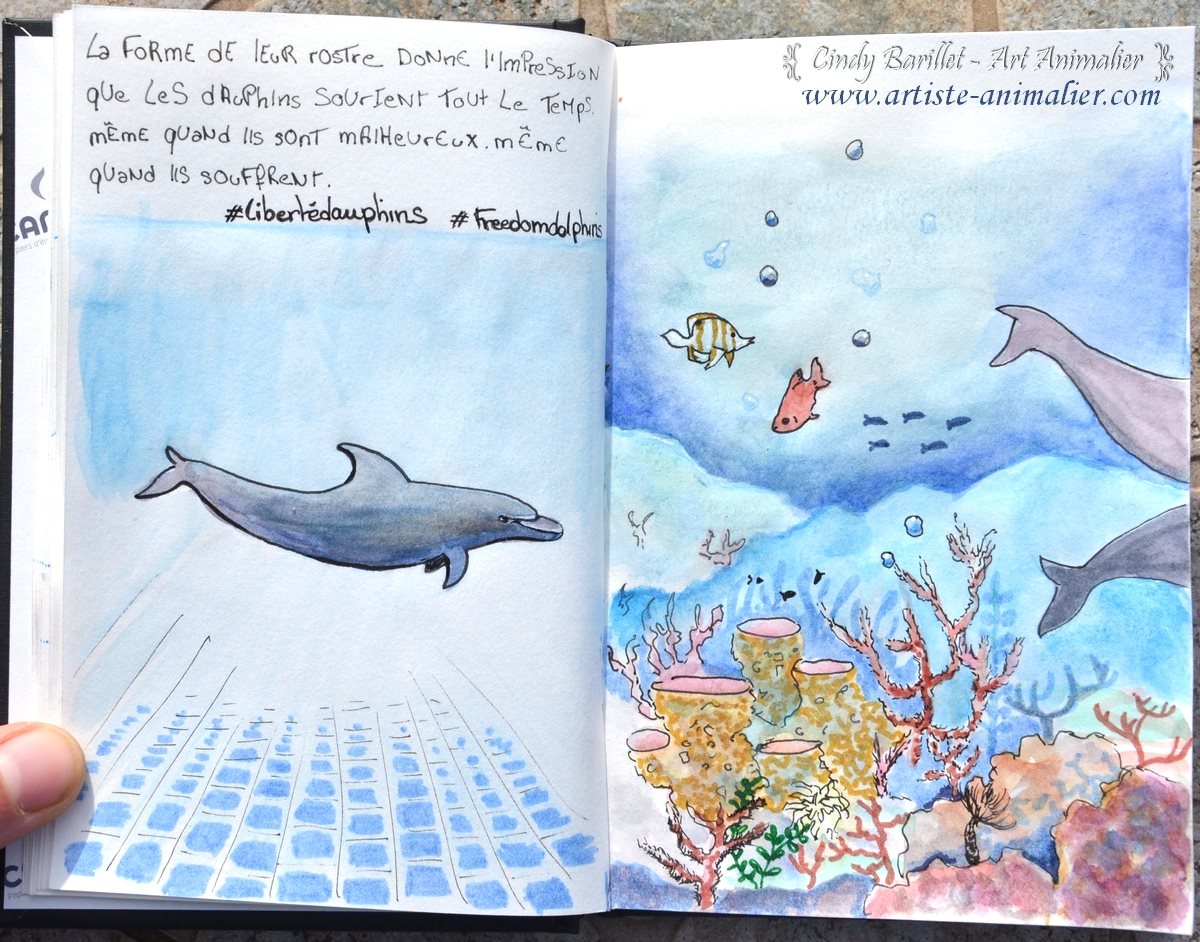 La forme de leur rostre donne l'impression
que les dauphins sourient tout le temps.
même quand ils sont malheureux. même
quand ils souffrent.
#Libertédauphins #Freedomdolphins
Cindy Barillet - Art Animalier
www.artiste-animalier.com